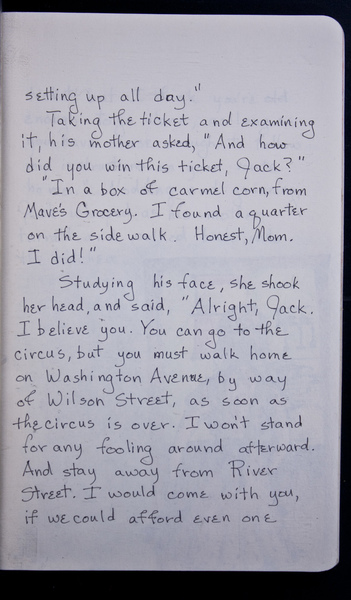 setting up all day."
Taking the ticket and examining
it, his mother asked, "And how
did you win this ticket, Jack?"
"In a box of carmel corn, from
Mave's Grocery. I found a quarter
on the side walk. Honest, Mom.
I did!"
Studying his face, she shook
her head, and said, "Alright, Jack.
I believe you. You can go to the
circus, but you must walk home
on Washington Avenue, by way
of Wilson Street, as soon as
the circus is over. I won't stand
for any fooling around afterward.
And stay away from River
Street. I would come with you,
if we could afford even one